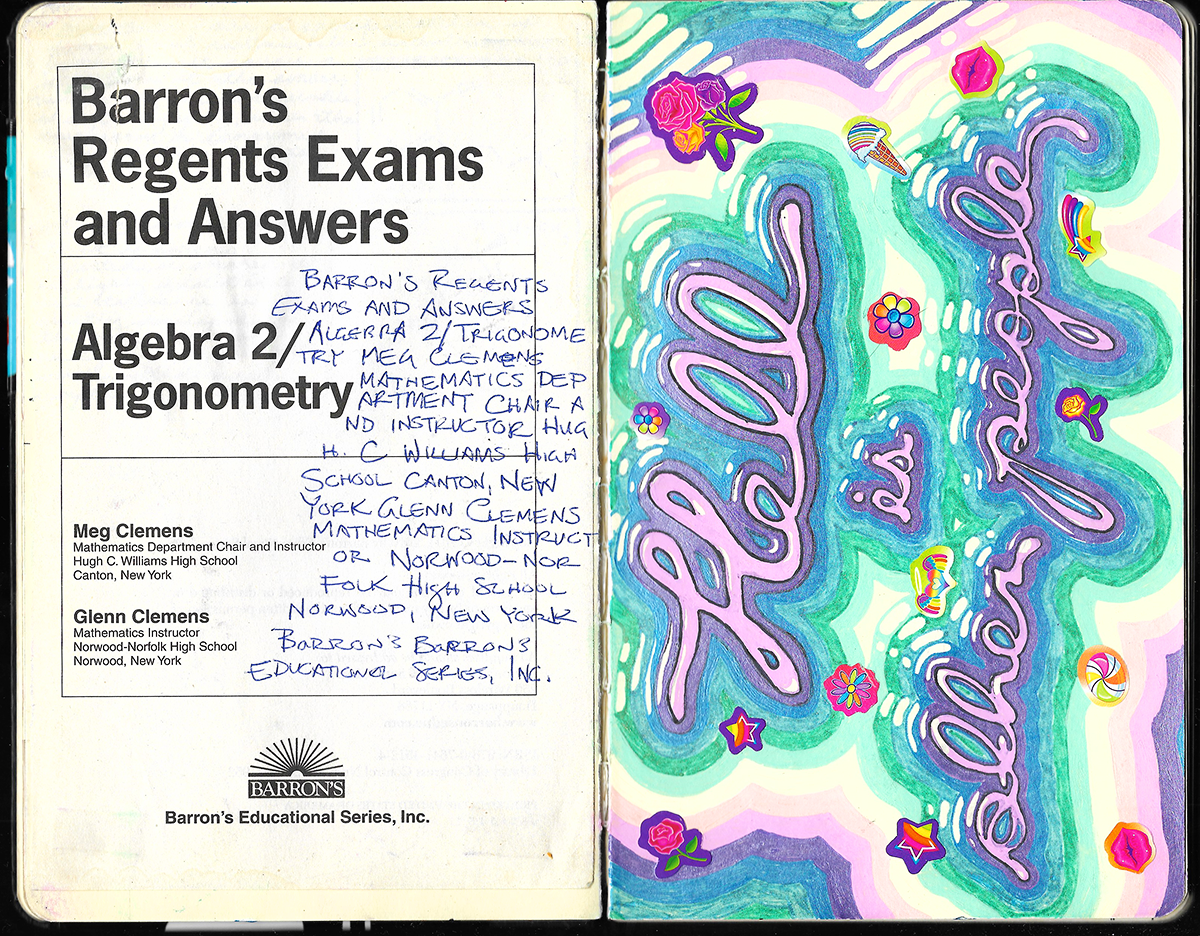 Barron's
Regents Exams
and Answers
Algebra 2/
Trigonometry
Meg Clemens
Mathematics Department Chair and Instructor
Hugh C. Williams High School
Canton, New York
Glenn Clemens
Mathematics Instructor
Norwood-Norfolk High School
Norwood, New York
BARRON'S
Barron's Educational Series, Inc.
BARRON'S REGENTS
EXAMS AND ANSWERS
ALGEBRA 2/TRIGONOME
TRY MEG CLEMENS
MATHEMATICS DEP
ARTMENT CHAIR A
ND INSTRUCTOR HUG
H. C WILLIAMS HIGH
SCHOOL CANTON, NEW
YORK GLENN CLEMENS
MATHEMATICS INSTRUCT
OR NORWOOD-NOR
FOLK HIGH SCHOOL
NORWOOD, NEW YORK
BARRON'S BARRON'S
EDUCATIONAL SERIES, INC.
Hell
is
other people